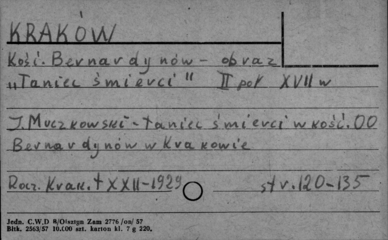 KRAKÓW
Kość. Bernardynów - obraz
„Taniec śmierci" II poł XVII w
J. Muczkowski - taniec śmierci w kość. OO
Bernardynów w Krakowie
Rocz. Krak. t XXII-1929 str. 120-135
Jedn. C.W.D 8/Olsztyn Zam 2776/oa/57
Bltk. 2563/57 10.000 szt. karton kl. 7 g 220.